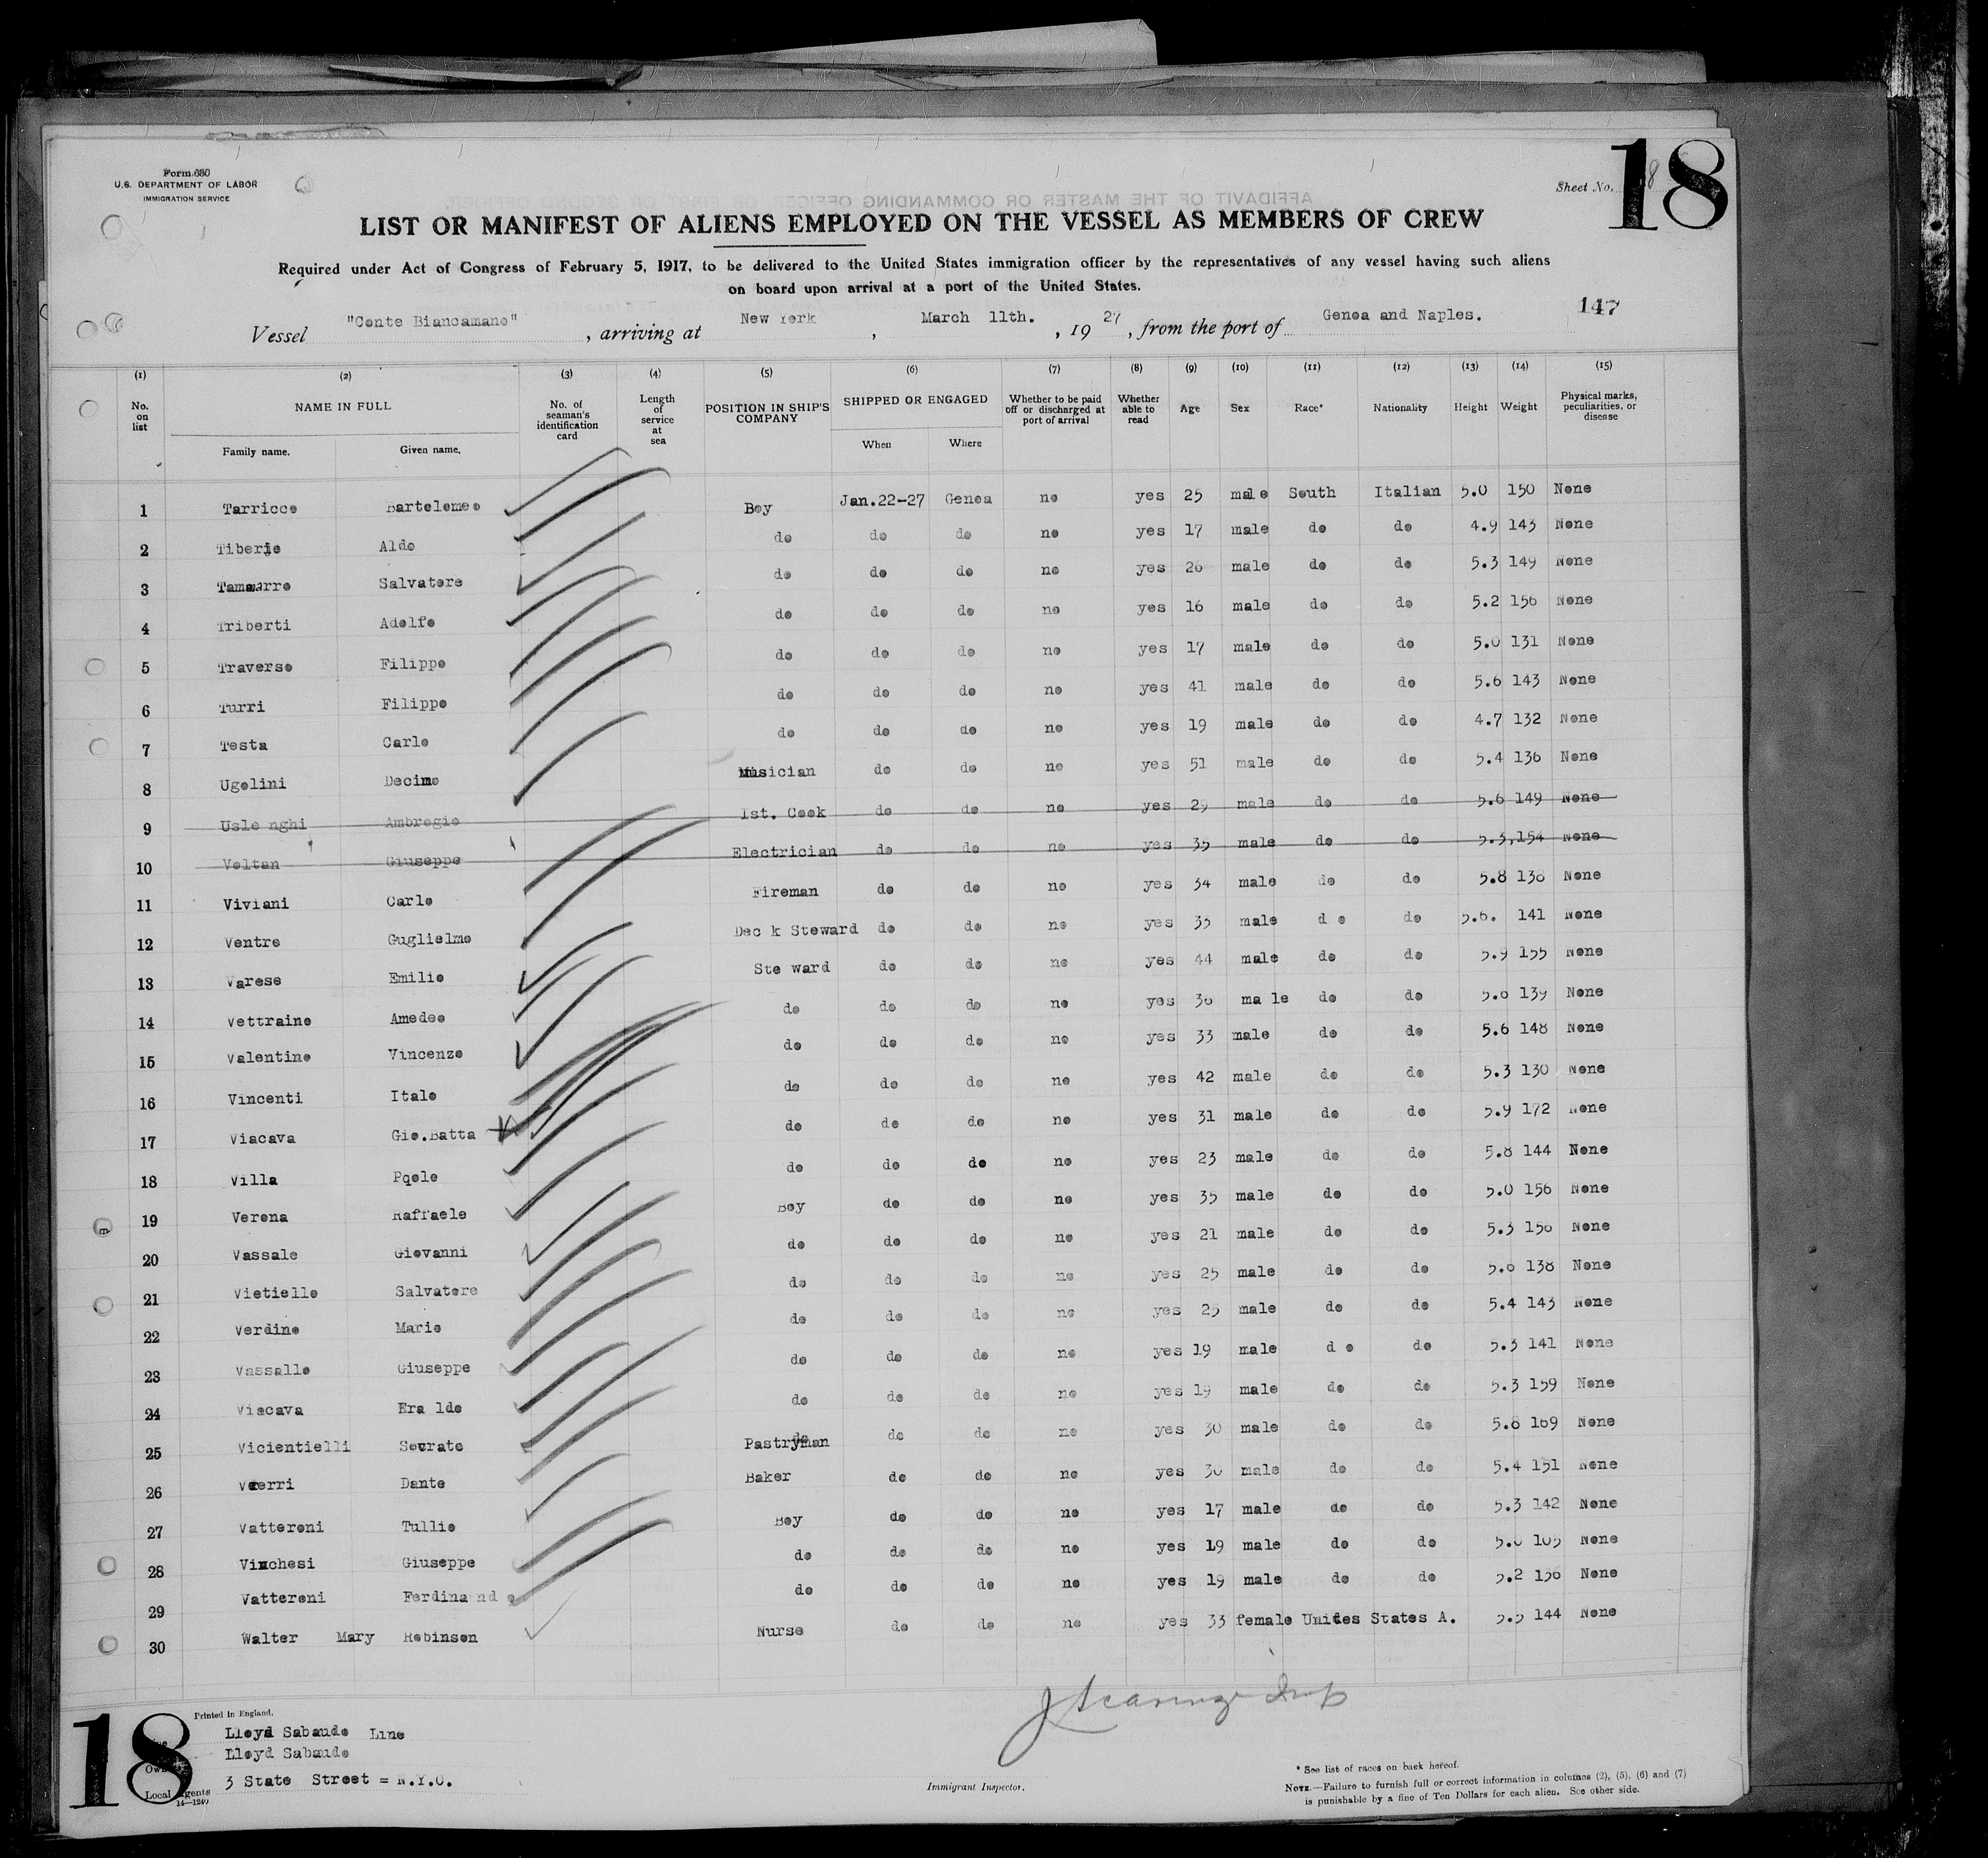 Form 680
U.S. DEPARTMENT OF LABOR
IMMIGRATION SERVICE
Sheet No. 18
18
LIST OR MANIFEST OF ALIENS EMPLOYED ON THE VESSEL AS MEMBERS OF CREW
Required under Act of Congress of February 5, 1917, to be delivered to the United States immigration officer by the representatives of any vessel having such aliens
on board upon arrival at a port of the United States.
Vessel "Conte Biancamano", arriving at New York, March 11th., 1927, from the port of Genoa and Naples. 147
(1) (2) (3) (4) (5) (6) (7) (8) (9) (10) (11) (12) (13) (14) (15)
No. on list NAME IN FULL Family name. Given name. No. of seaman's identification card Length of service at sea POSITION IN SHIP'S COMPANY SHIPPED OR ENGAGED When Where Whether to be paid off or discharged at port of arrival Whether able to read Age Sex Race* Nationality Height Weight Physical marks, peculiarities, or disease
1 Tarricco Bartolomeo Boy Jan.22-27 Genoa no yes 25 male South Italian 5.0 150 None
2 Tiberio Aldo do do do no yes 17 male do do 4.9 143 None
3 Tamarro Salvatore do do do no yes 26 male do do 5.3 149 None
4 Triberti Adolfo do do do no yes 16 male do do 5.2 156 None
5 Traverso Filippo do do do no yes 17 male do do 5.0 131 None
6 Turri Filippo do do do no yes 41 male do do 5.6 143 None
7 Testa Carlo do do do no yes 19 male do do 4.7 132 None
8 Ugolini Decimo Musician do do no yes 51 male do do 5.4 136 None
9 Uslenghi Ambrogio 1st. Cook do do no yes 29 male do do 5.6 149 None
10 Voltan Giuseppe Electrician do do no yes 35 male do do 5.3 154 None
11 Viviani Carlo Fireman do do no yes 34 male do do 5.8 138 None
12 Ventre Guglielmo Dec k Steward do do no yes 35 male d o do 5.6. 141 None
13 Varese Emilio Ste ward do do no yes 44 male do do 5.9 155 None
14 Vettraino Amedeo do do do no yes 36 ma le do do 5.6 139 None
15 Valentino Vincenzo do do do no yes 33 male do do 5.6 148 None
16 Vincenti Italo do do do no yes 42 male do do 5.3 130 None
17 Viacava Gio.Batta do do do no yes 31 male do do 5.9 172 None
18 Villa Pqolo do do do no yes 23 male do do 5.8 144 None
19 Verona Raffaele Boy do do no yes 35 male do do 5.0 156 None
20 Vassale Giovanni do do do no yes 21 male do do 5.3 156 None
21 Vietiello Salvatore do do do no yes 25 male do do 5.6 138 None
22 Verdino Mario do do do no yes 25 male do do 5.4 143 None
23 Vassallo Giuseppe do do do no yes 19 male d o do 5.3 141 None
24 Viacava Era ldo do do do no yes 19 male do do 5.3 159 None
25 Vicientielli Socrate Pastryman do do no yes 30 male do do 5.8 169 None
26 Verri Dante Baker do do no yes 30 male do do 5.4 151 None
27 Vatteroni Tullio Boy do do no yes 17 male do do 5.3 142 None
28 Vinchesi Giuseppe do do do no yes 19 male do do None
29 Vatteroni Ferdinand o do do do no yes 19 male do do 5.2 136 None
30 Walter Mary Robinson Nurse do do no yes 33 female Unides States A. 5.5 144 None
18
Printed in England.
Lloyd Sabaudo Line
Lloyd Sabaudo
Local Agents 3 State Street = N.Y.C.
14—1240
Immigrant Inspector.
* See list of races on back hereof.
NOTE.—Failure to furnish full or correct information in columns (2), (5), (6) and (7)
is punishable by a fine of Ten Dollars for each alien. See other side.